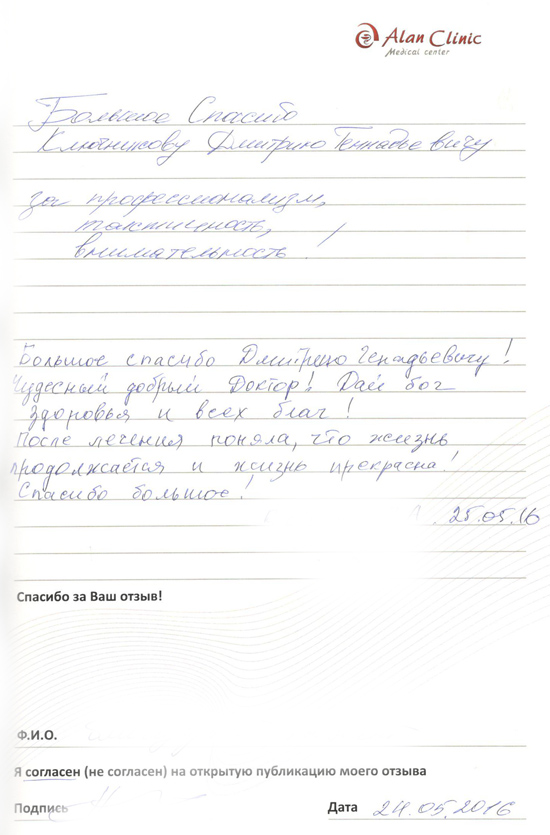 Alan Clinic
Medical center
Большое Спасибо
Ключникову Дмитрию Геннадьевичу
за профессионализм,
тактичность,
внимательность !
Большое спасибо Дмитрию Генадьевичу!
Чудесный добрый Доктор! Дай бог
здоровья и всех благ!
После лечения поняла, что жизнь
продолжается и жизнь прекрасна!
Спасибо большое!
25.05.16
Спасибо за Ваш отзыв!
Ф.И.О.
Я согласен (не согласен) на открытую публикацию моего отзыва
Подпись
Дата 24.05.2016